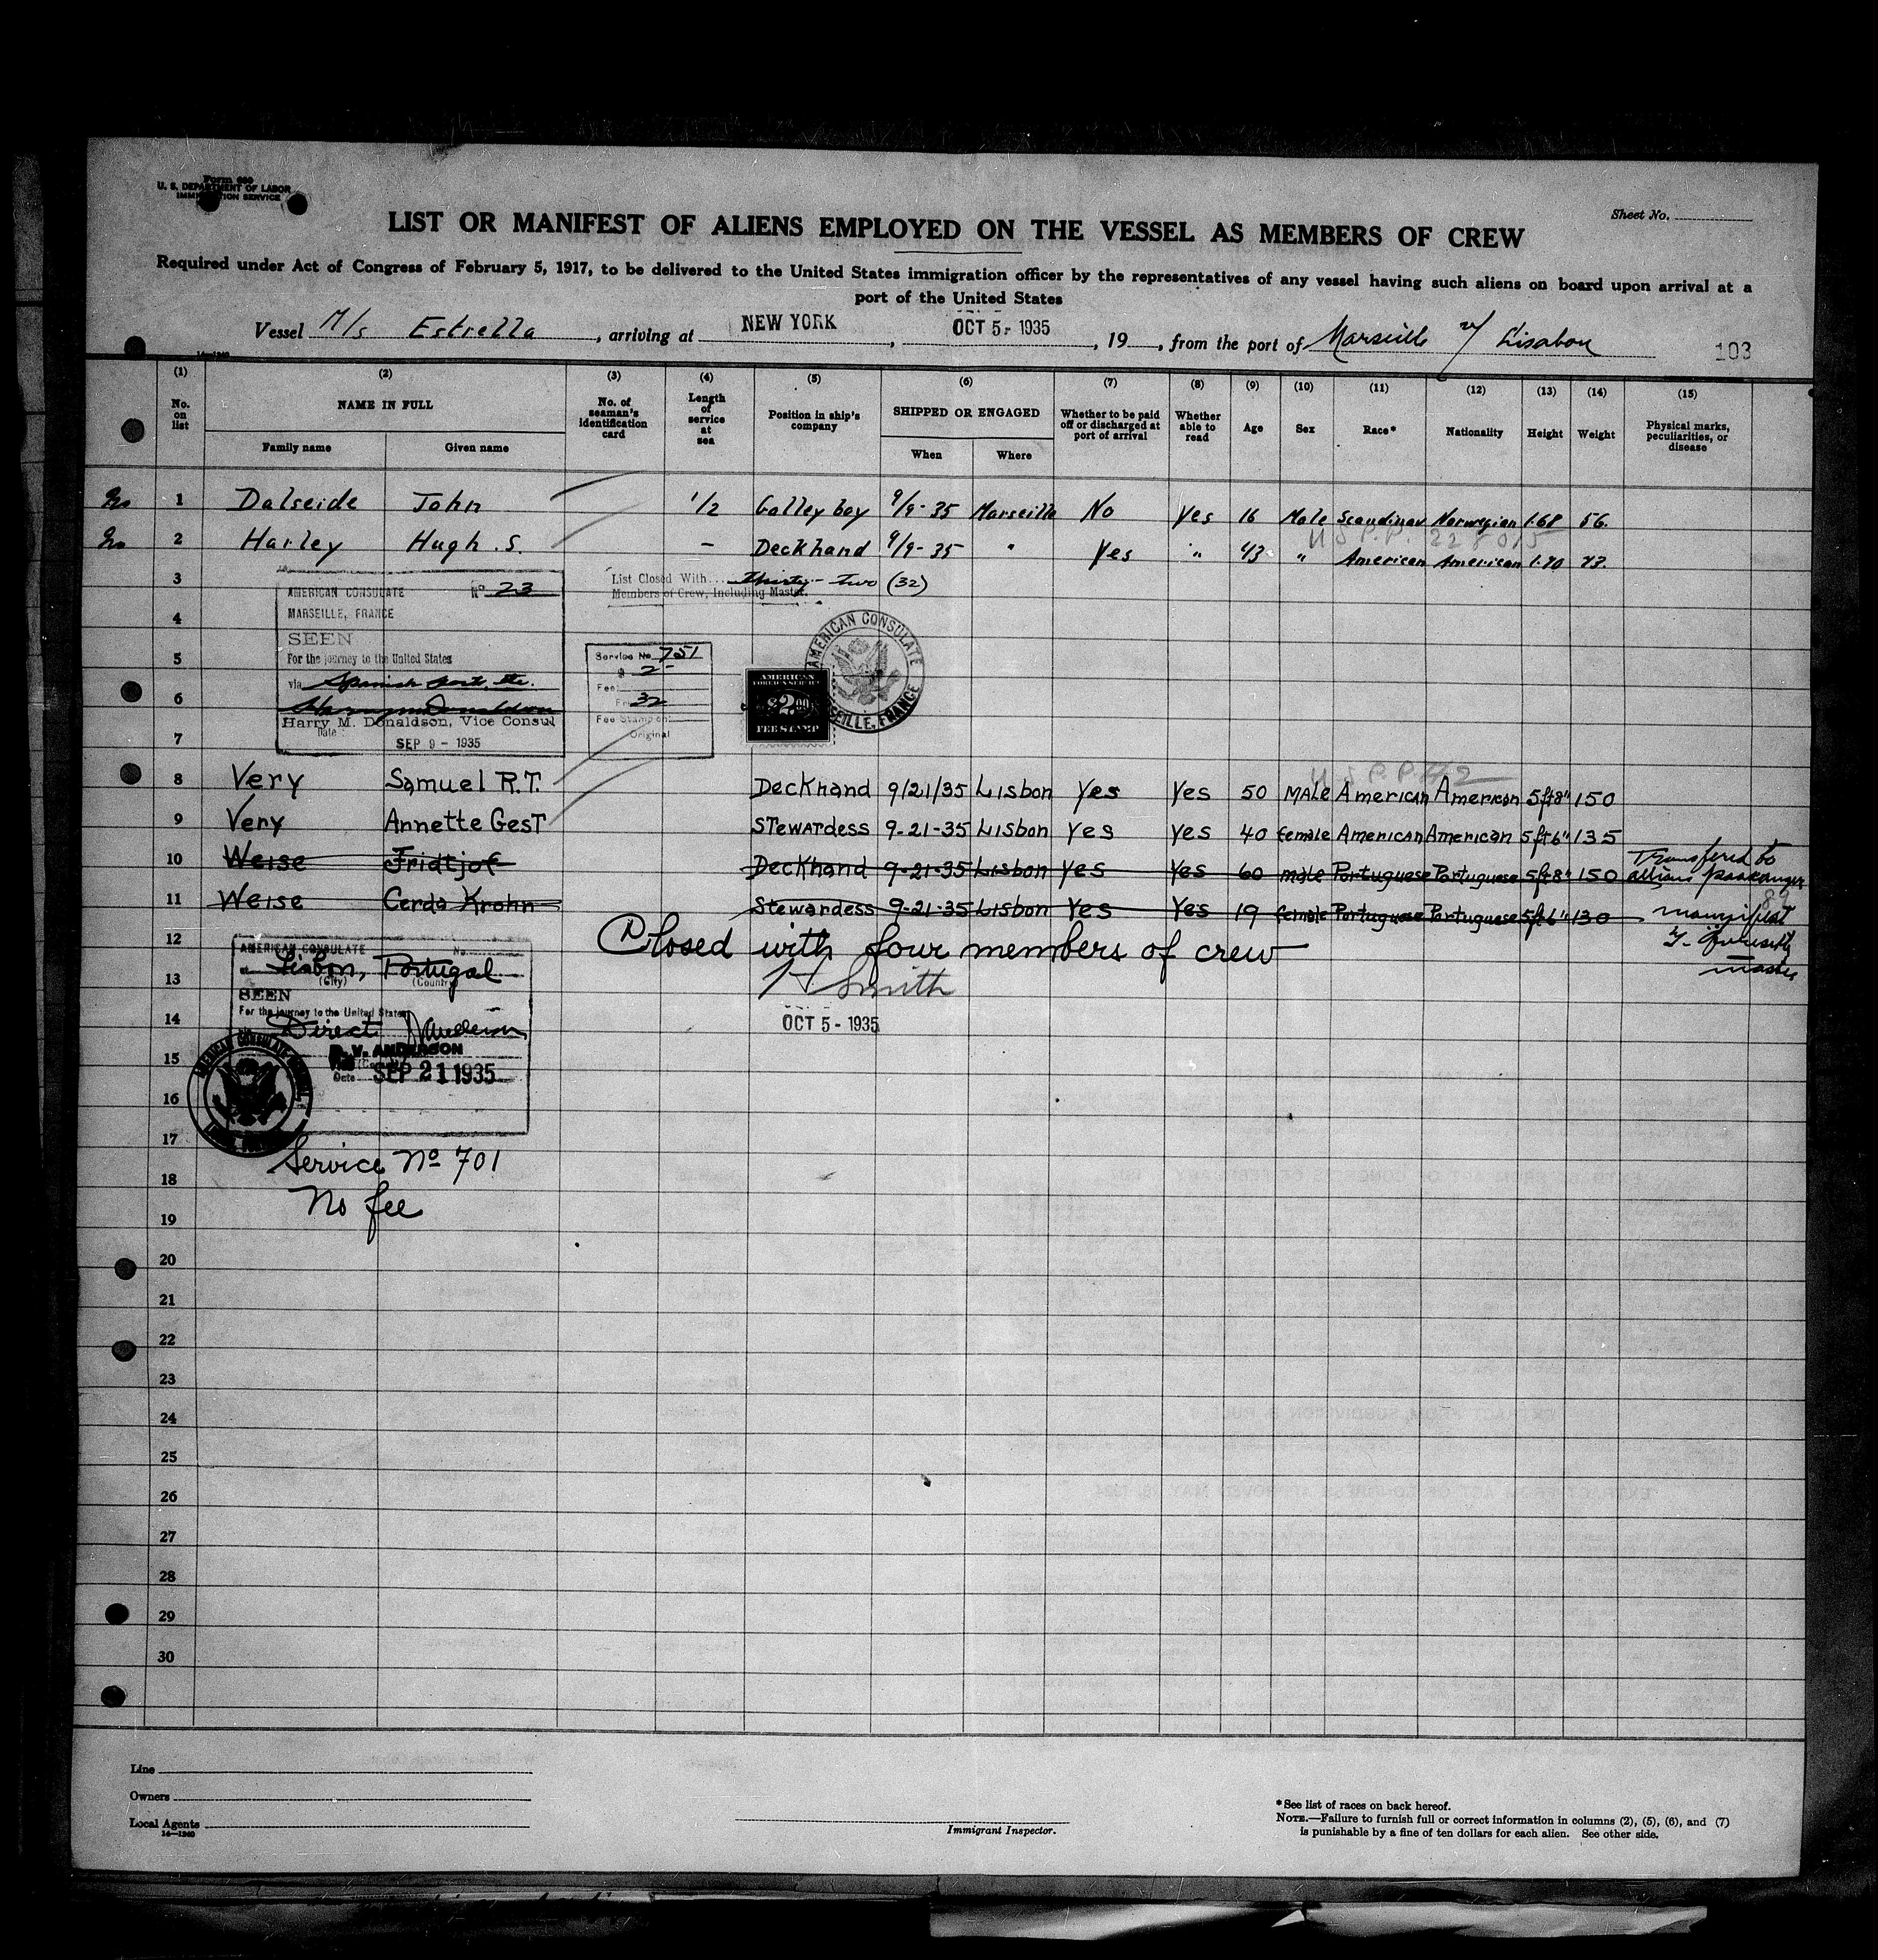 Form 680
U. S. DEPARTMENT OF LABOR
IMMIGRATION SERVICE
Sheet No.
LIST OR MANIFEST OF ALIENS EMPLOYED ON THE VESSEL AS MEMBERS OF CREW
Required under Act of Congress of February 5, 1917, to be delivered to the United States immigration officer by the representatives of any vessel having such aliens on board upon arrival at a
port of the United States
Vessel M/s Estrella, arriving at NEW YORK, OCT 5 - 1935, 19, from the port of Marseille Lisabon
103
14—1240
(1) (2) (3) (4) (5) (6) (7) (8) (9) (10) (11) (12) (13) (14) (15)
No. on list NAME IN FULL Family name Given name No. of seaman's identification card Length of service at sea Position in ship's company SHIPPED OR ENGAGED When Where Whether to be paid off or discharged at port of arrival Whether able to read Age Sex Race* Nationality Height Weight Physical marks, peculiarities, or disease
1 Dalseide John 1/2 Galley boy 9/9-35 Marseille No Yes 16 Male Scandinav Norwegian 1.68 56.
U S P.P. 228015
2 Harley Hugh. S. — Deckhand 9/9-35 " Yes " 43 " American American 1.70 73.
3 List Closed With Thirty-two (32)
Members of Crew, Including Master.
AMERICAN CONSULATE No 23
MARSEILLE, FRANCE
4
SEEN
5
For the journey to the United States
via Spanish port, etc.
6
Harry M. Donaldson, Vice Consul
Date
SEP 9 - 1935
7
Service No 751
$ 2-
Fee
32
Fee Stamp on
Original
AMERICAN
FOREIGN SERVICE
$2.00
FEE STAMP
AMERICAN CONSULATE
MARSEILLE, FRANCE
U S P.P. #2
8 Very Samuel R.T. Deckhand 9/21/35 Lisbon Yes Yes 50 Male American American 5ft8" 150
9 Very Annette Gest Stewardess 9-21-35 Lisbon Yes Yes 40 female American American 5ft6" 135
10 Weise Fridtjof Deckhand 9-21-35 Lisbon Yes Yes 60 male Portuguese Portuguese 5ft8" 150 Transfered to
11 Weise Cerda Krohn Stewardess 9-21-35 Lisbon Yes Yes 19 female Portuguese Portuguese 5ft6" 130
master
12 Closed with four members of crew
13 H Smith
14 OCT 5 - 1935
AMERICAN CONSULATE No.
at Lisbon, Portugal
(City) (Country)
SEEN
For the journey to the United States
Direct
15
R. V. ANDERSON
Date SEP 21 1935
16
17
Service No 701
18
No fee
19
20
21
22
23
24
25
26
27
28
29
30
Line
Owners
Local Agents
14—1240
Immigrant Inspector.
*See list of races on back hereof.
NOTE.—Failure to furnish full or correct information in columns (2), (5), (6), and (7)
is punishable by a fine of ten dollars for each alien. See other side.